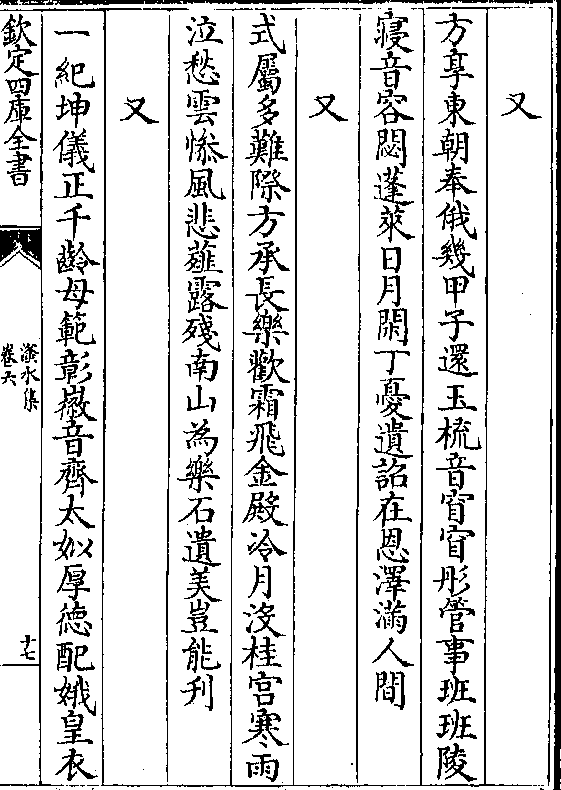 又
方享東朝奉俄幾甲子還玉梳音窅窅彤管事班班陵
寢音容閟蓬萊日月閑丁憂遺詔在恩澤滿人間
又
式屬多難際方承長樂歡霜飛金殿冷月沒桂宮寒雨
泣愁雲慘風悲薤露殘南山為樂石遺美豈能刋
又
一紀坤儀正千齡母範彰徽音齊太姒厚德配娥皇衣
欽定四庫全書
滏水集
卷六
十七